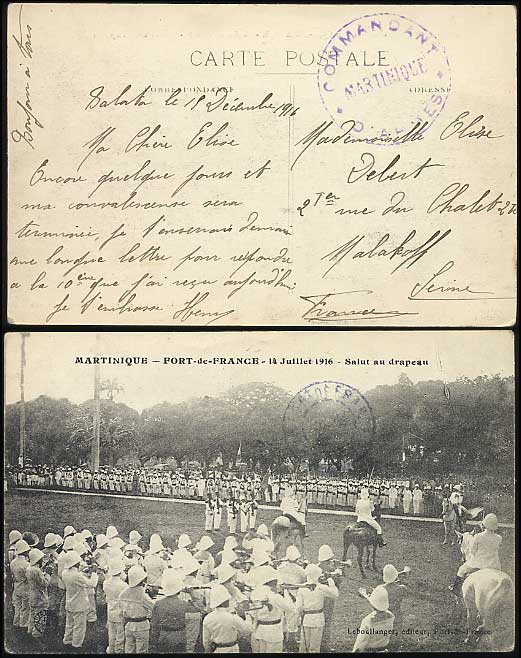 CARTE POSTALE
CORRESPONDANCE
ADRESSE
COMMANDANT
MARTINIQUE
Balata le 18 Décembre 1916
Ma Chère Elise
Encore quelque jours et
ma convalescense sera
terminée, je t'enverrais demain
une longue lettre pour repondre
a la 10ème que j'ai reçu aujourd'hui
Je t'embrasse Henry
Mademoiselle Elise
Debert
2Ter rue du Chalet 2Ter
Malakoff
Seine
France
MARTINIQUE — FORT-de-FRANCE - 14 Juillet 1916 - Salut au drapeau
Leboullanger, éditeur, Fort-de-France